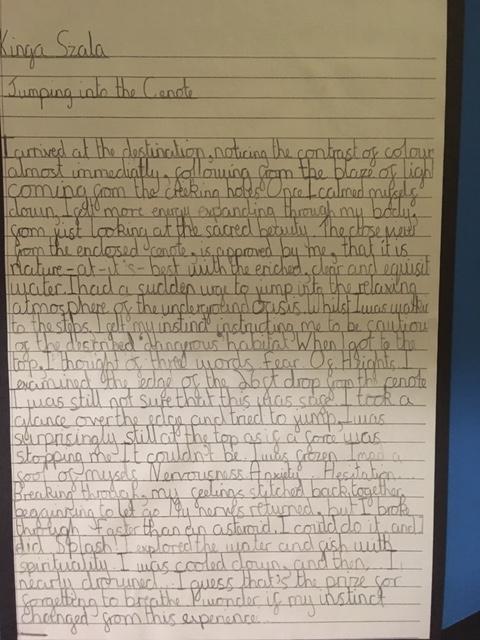 Kinga Szala
Jumping into the Cenote
I arrived at the destination, noticing the contrast of colour
almost immediatly, following from the blaze of ligh
coming from the creeking holes. Once I calmed myself
down, I felt more energy expanding through my body,
from just looking at the sacred beauty. The close view
from the enclosed cenote, is approved by me, that it is
Nature-at-it's-best with the eriched, clear and equisit
water. I had a sudden urge to jump into the relaxing
atmosphere of the underground Oasis. Whilst I was walkin
to the steps, I felt my instinct instructing me to be cautiou
of the destroyed dangerous habitat. When I got to the
top, I thought of three words, Fear Of Heights. I
examined the edge of the 26ft drop from the cenote
I was still not sure that this was safe. I took a
glance over the edge and tried to jump, I was
surprisingly still at the top as if a force was
stopping me. It couldn't be. I was frozen. I made a
fool of myself. Nervousness. Anxiety. Hesitation...
Breaking through, my feelings stitched back together,
beguinning to let go. My nerves returned, but I broke
through. Faster than an astaroid. I could do it, and
did. Splash! I explored the water and fish with
spirituality. I was cooled down, and then... I
nearly drowned. I guess that's the prize for
forgetting to breathe. I wonder if my instinct
changed from this experience...